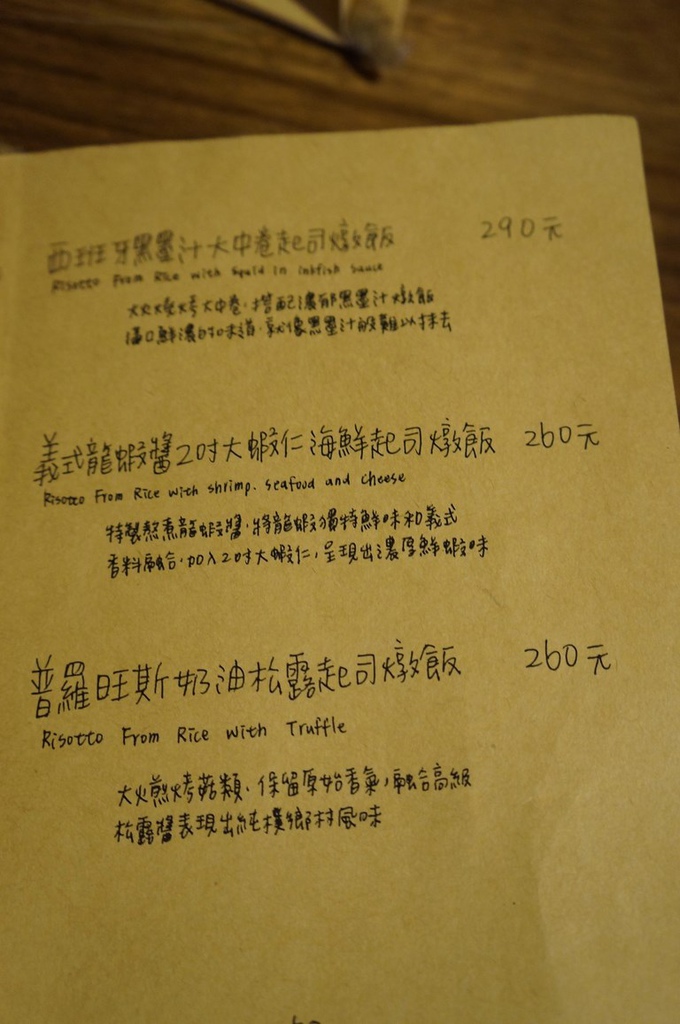 西班牙黑墨汁大中卷起司燉飯 290元
Risotto From Rice with Squid in inkfish sauce
大火燒烤大中卷,搭配濃郁黑墨汁燉飯
滿口鮮濃的味道,就像黑墨汁般難以抹去
義式龍蝦醬20吋大蝦仁海鮮起司燉飯 260元
Risotto From Rice with shrimp. seafood and cheese
特製熬煮龍蝦醬,將龍蝦獨特鮮味和義式
香料融合,加入20吋大蝦仁,呈現出濃厚鮮蝦味
普羅旺斯奶油松露起司燉飯 260元
Risotto From Rice with Truffle
大火煎烤菇類,保留原始香氣,融合高級
松露醬表現出純樸鄉村風味